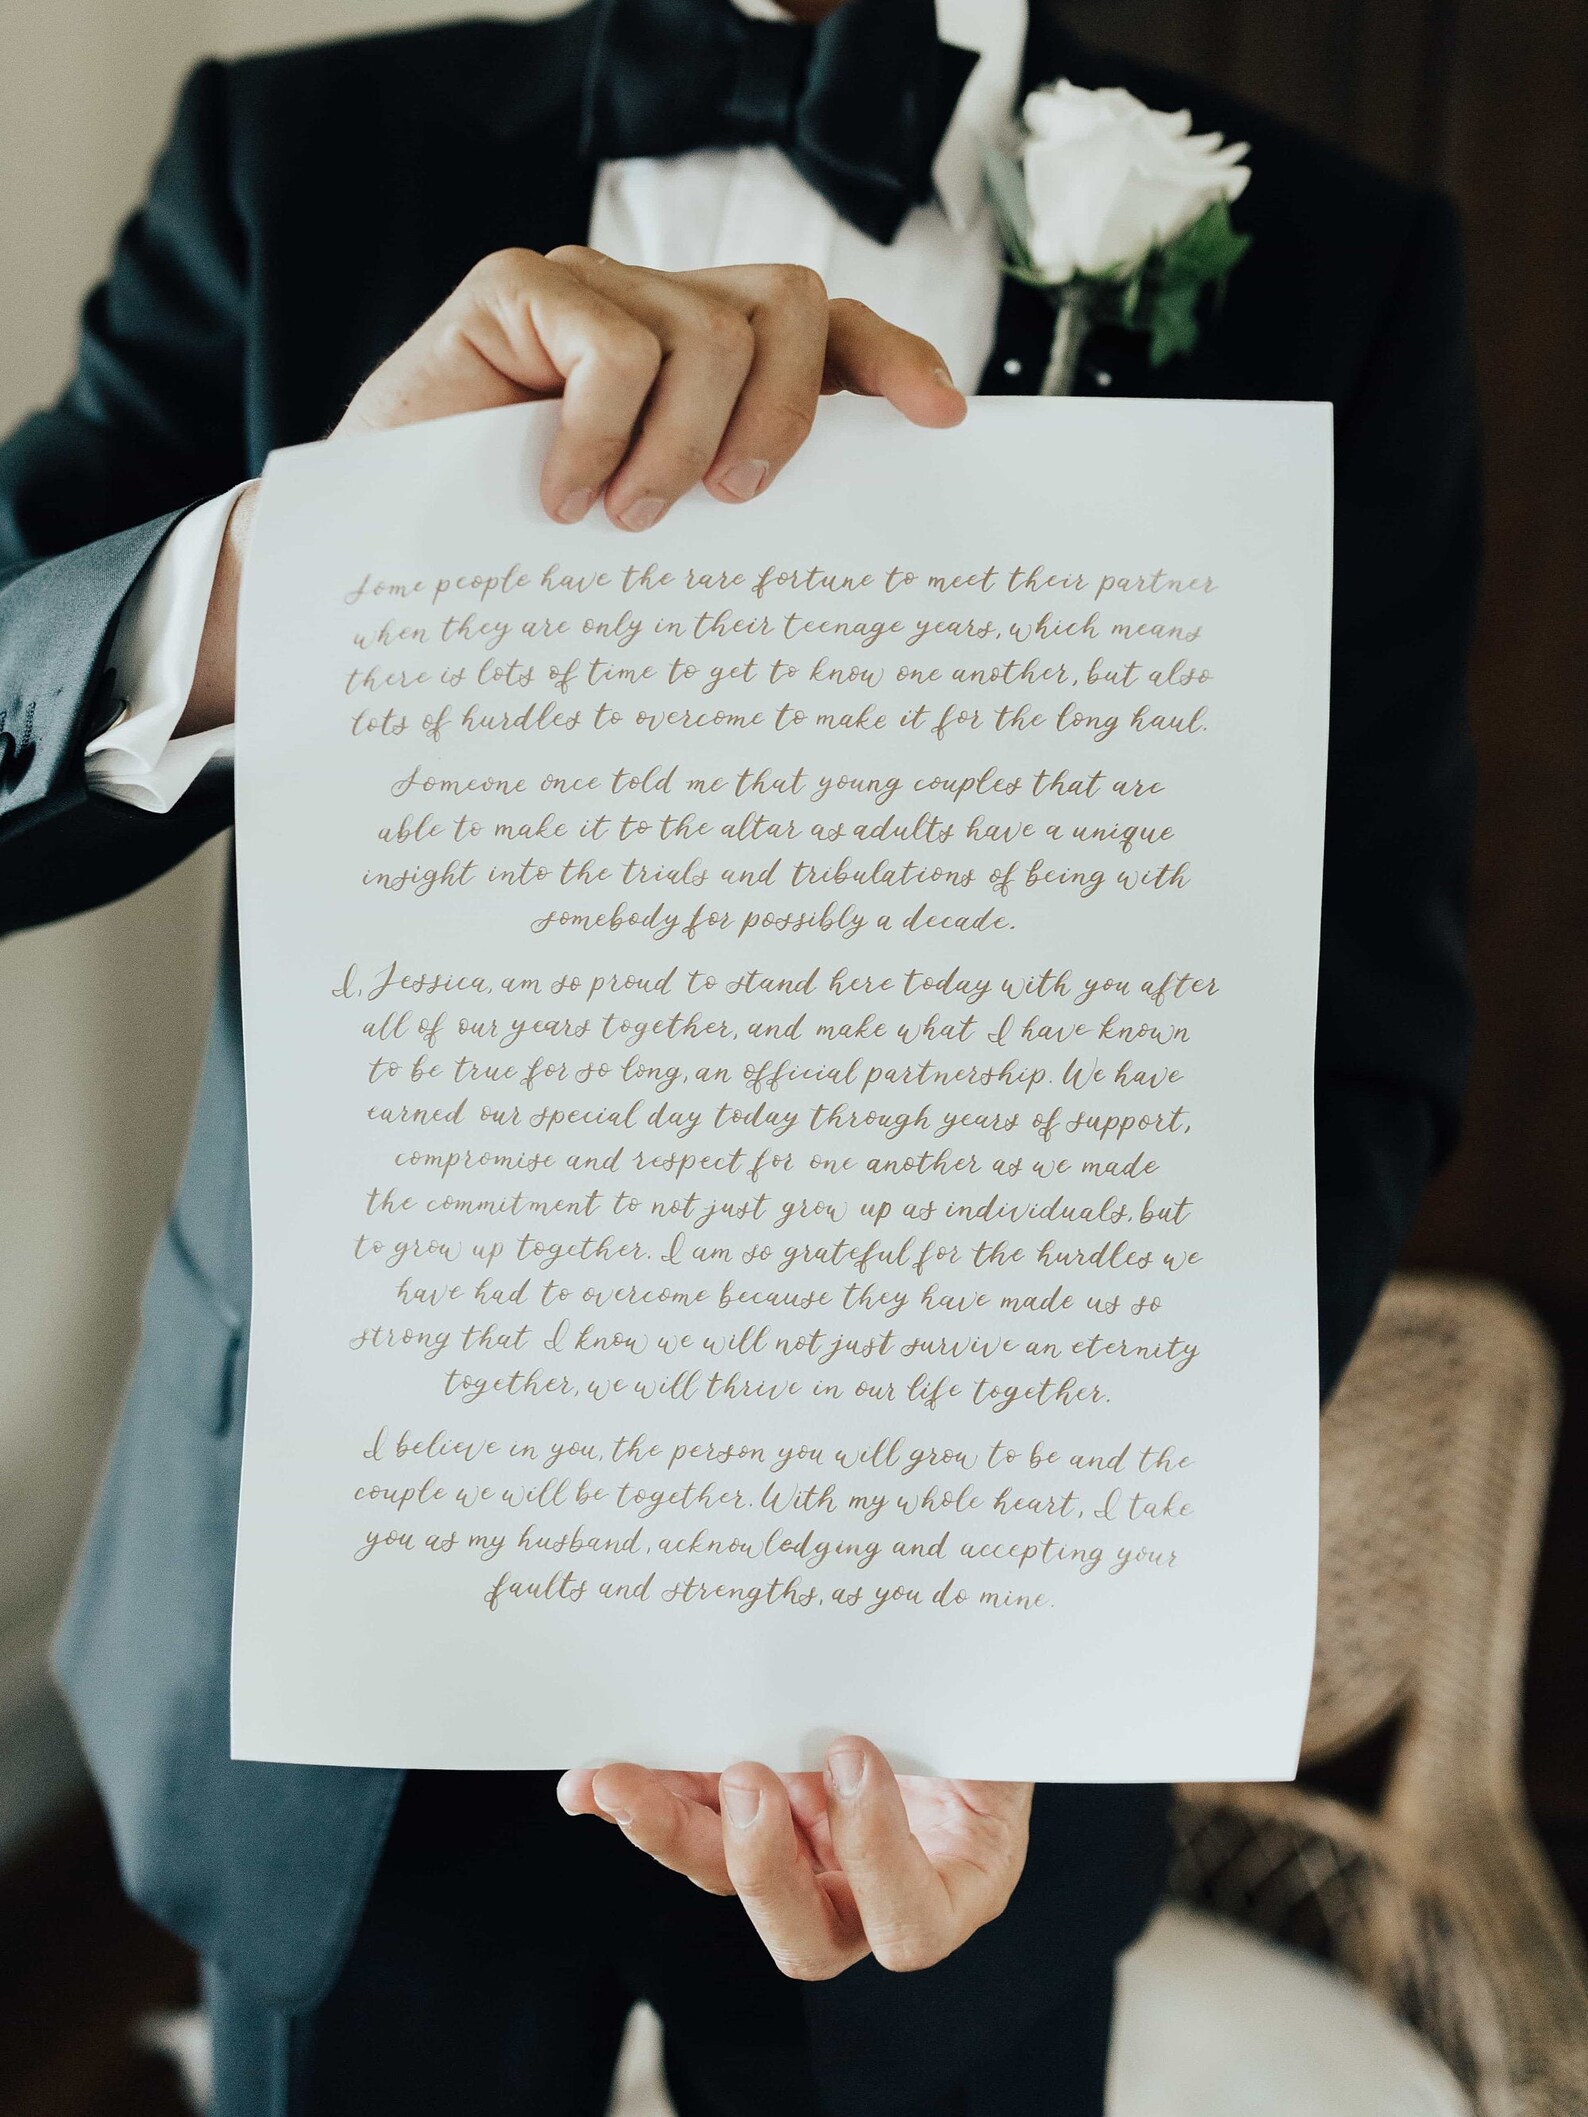 Some people have the rare fortune to meet their partner
when they are only in their teenage years, which means
there is lots of time to get to know one another, but also
lots of hurdles to overcome to make it for the long haul.
Someone once told me that young couples that are
able to make it to the altar as adults have a unique
insight into the trials and tribulations of being with
somebody for possibly a decade.
I, Jessica, am so proud to stand here today with you after
all of our years together, and make what I have known
to be true for so long, an official partnership. We have
earned our special day today through years of support,
compromise and respect for one another as we made
the commitment to not just grow up as individuals, but
to grow up together. I am so grateful for the hurdles we
have had to overcome because they have made us so
strong that I know we will not just survive an eternity
together, we will thrive in our life together.
I believe in you, the person you will grow to be and the
couple we will be together. With my whole heart, I take
you as my husband, acknowledging and accepting your
faults and strengths, as you do mine.